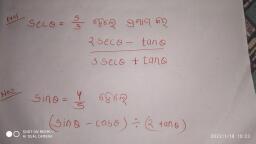 secθ = 5/3 ହେଲେ ପ୍ରମାଣ କର
2secθ − tanθ
3secθ + tanθ
sinθ = 4/5 ହେଲେ
(sinθ − cosθ) ÷ (2 + tanθ)
SHOT ON REDMI
AI DUAL CAMERA
2022/1/18